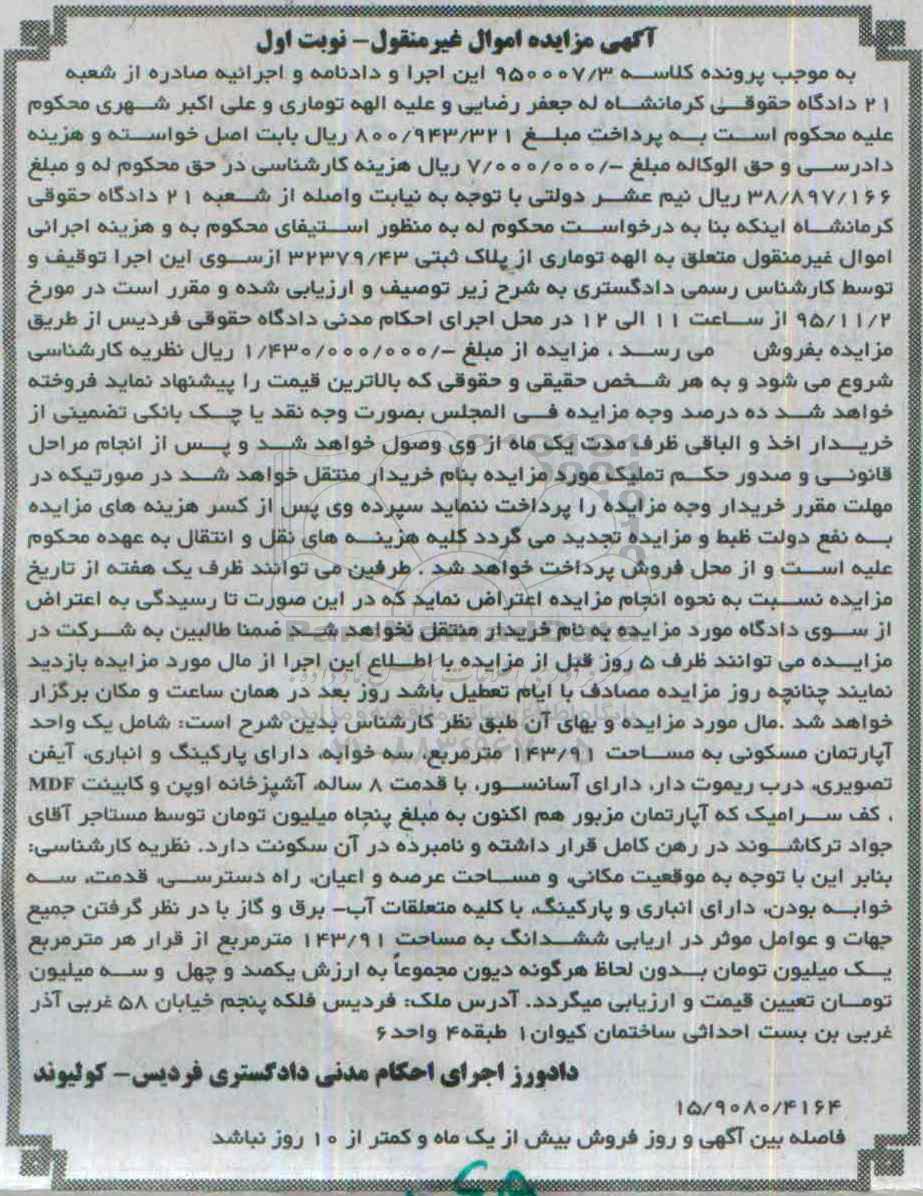 آگهی مزایده اموال غیرمنقول- نوبت اول
به موجب پرونده کلاسه ۹۵۰۰۰۷/۳ این اجرا و دادنامه و اجرائیه صادره از شعبه
۲۱ دادگاه حقوقی کرمانشاه له جعفر رضایی و علیه الهه توماری و علی اکبر شهری محکوم
علیه محکوم است به پرداخت مبلغ ۸۰۰/۹۴۳/۳۲۱ ریال بابت اصل خواسته و هزینه
دادرسی و حق الوکاله مبلغ -/۷/۰۰۰/۰۰۰ ریال هزینه کارشناسی در حق محکوم له و مبلغ
۳۸/۸۹۷/۱۶۶ ریال نیم عشر دولتی با توجه به نیابت واصله از شعبه ۲۱ دادگاه حقوقی
کرمانشاه اینکه بنا به درخواست محکوم له به منظور استیفای محکوم به و هزینه اجرائی
اموال غیرمنقول متعلق به الهه توماری از پلاک ثبتی ۳۲۳۷۹/۴۳ ازسوی این اجرا توقیف و
توسط کارشناس رسمی دادگستری به شرح زیر توصیف و ارزیابی شده و مقرر است در مورخ
۹۵/۱۱/۲ از ساعت ۱۱ الی ۱۲ در محل اجرای احکام مدنی دادگاه حقوقی فردیس از طریق
مزایده بفروش می رسد ، مزایده از مبلغ -/۱/۴۳۰/۰۰۰/۰۰۰ ریال نظریه کارشناسی
شروع می شود و به هر شخص حقیقی و حقوقی که بالاترین قیمت را پیشنهاد نماید فروخته
خواهد شد ده درصد وجه مزایده فی المجلس بصورت وجه نقد یا چک بانکی تضمینی از
خریدار اخذ و الباقی ظرف مدت یک ماه از وی وصول خواهد شد و پس از انجام مراحل
قانونی و صدور حکم تملیک مورد مزایده بنام خریدار منتقل خواهد شد در صورتیکه در
مهلت مقرر خریدار وجه مزایده را پرداخت ننماید سپرده وی پس از کسر هزینه های مزایده
به نفع دولت ظبط و مزایده تجدید می گردد کلیه هزینه های نقل و انتقال به عهده محکوم
علیه است و از محل فروش پرداخت خواهد شد . طرفین می توانند ظرف یک هفته از تاریخ
مزایده نسبت به نحوه انجام مزایده اعتراض نماید که در این صورت تا رسیدگی به اعتراض
از سوی دادگاه مورد مزایده به نام خریدار منتقل نخواهد شد ضمنا طالبین به شرکت در
مزایده می توانند ظرف ۵ روز قبل از مزایده با اطلاع این اجرا از مال مورد مزایده بازدید
نمایند چنانچه روز مزایده مصادف با ایام تعطیل باشد روز بعد در همان ساعت و مکان برگزار
خواهد شد .مال مورد مزایده و بهای آن طبق نظر کارشناس بدین شرح است: شامل یک واحد
آپارتمان مسکونی به مساحت ۱۴۳/۹۱ مترمربع، سه خوابه، دارای پارکینگ و انباری، آیفن
تصویری، درب ریموت دار، دارای آسانسور، با قدمت ۸ ساله، آشپزخانه اوپن و کابینت MDF
، کف سرامیک که آپارتمان مزبور هم اکنون به مبلغ پنجاه میلیون تومان توسط مستاجر آقای
جواد ترکاشوند در رهن کامل قرار داشته و نامبرده در آن سکونت دارد. نظریه کارشناسی:
بنابر این با توجه به موقعیت مکانی، و مساحت عرصه و اعیان، راه دسترسی، قدمت، سه
خوابه بودن، دارای انباری و پارکینگ، با کلیه متعلقات آب- برق و گاز با در نظر گرفتن جمیع
جهات و عوامل موثر در اریابی ششدانگ به مساحت ۱۴۳/۹۱ مترمربع از قرار هر مترمربع
یک میلیون تومان بدون لحاظ هرگونه دیون مجموعاً به ارزش یکصد و چهل و سه میلیون
تومان تعیین قیمت و ارزیابی میگردد. آدرس ملک: فردیس فلکه پنجم خیابان ۵۸ غربی آذر
غربی بن بست احداثی ساختمان کیوان۱ طبقه۴ واحد۶
دادورز اجرای احکام مدنی دادگستری فردیس- کولیوند
۱۵/۹۰۸۰/۴۱۶۴
فاصله بین آگهی و روز فروش بیش از یک ماه و کمتر از ۱۰ روز نباشد